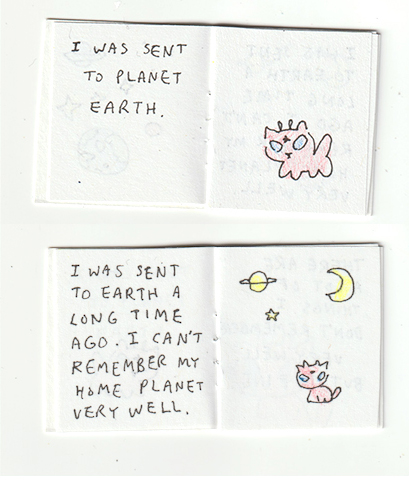 I WAS SENT
TO PLANET
EARTH.
I WAS SENT
TO EARTH A
LONG TIME
AGO. I CAN'T
REMEMBER MY
HOME PLANET
VERY WELL.